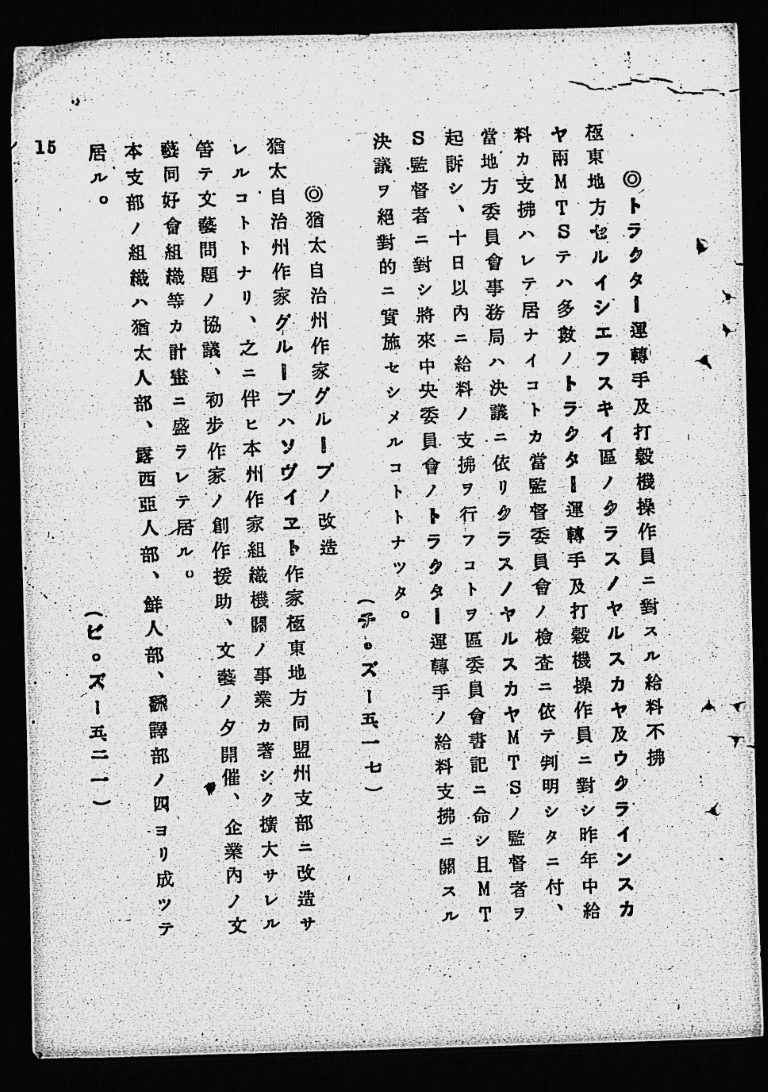 ◎トラクター運轉手及打穀機操作員ニ對スル給料不拂
極東地方セルイシエフスキイ區ノクラスノヤルスカヤ及ウクラインスカ
ヤ兩MTSテハ多數ノトラクター運轉手及打穀機操作員ニ對シ昨年中給
料カ支拂ハレテ居ナイコトカ當監督委員會ノ檢査ニ依テ判明シタニ付、
當地方委員會事務局ハ決議ニ依リクラスノヤルスカヤMTSノ監督者ヲ
起訴シ、十日以內ニ給料ノ支拂ヲ行フコトヲ區委員會書記ニ命シ且MT
S監督者ニ對シ將來中央委員會ノトラクター運轉手ノ給料支拂ニ關スル
決議ヲ絕對的ニ實施セシメルコトトナツタ。
(チ。ズー五、一七)
◎猶太自治州作家グループノ改造
猶太自治州作家グループハソヴイエト作家極東地方同盟州支部ニ改造サ
レルコトトナリ、之ニ伴ヒ本州作家組織機關ノ事業カ著シク擴大サレル
筈テ文藝問題ノ協議、初步作家ノ創作援助、文藝ノ夕開催、企業內ノ文
藝同好會組織等カ計畫ニ盛ラレテ居ル。
本支部ノ組織ハ猶太人部、露西亞人部、鮮人部、飜譯部ノ四ヨリ成ツテ
居ル。
(ビ。ズー五、二一)
15